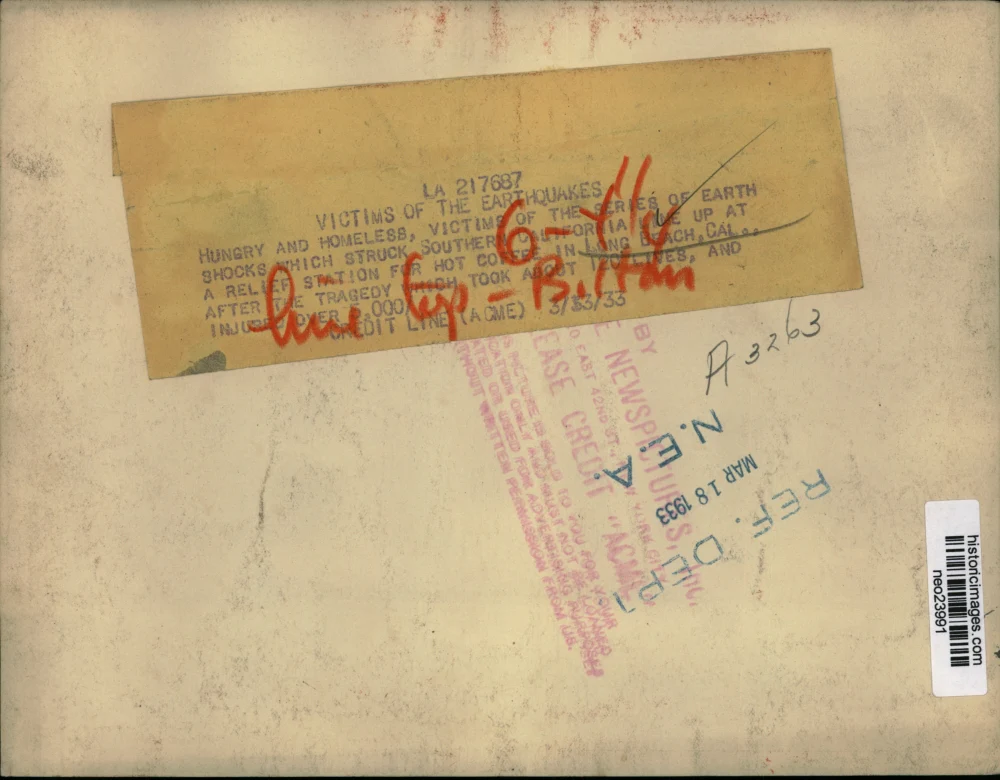 LA 217687
VICTIMS OF THE EARTHQUAKES
HUNGRY AND HOMELESS, VICTIMS OF THE SERIES OF EARTH
SHOCKS WHICH STRUCK SOUTHERN CALIFORNIA UP AT
A RELIEF STATION FOR HOT COFFEE IN LONG BEACH, CAL.,
AFTER THE TRAGEDY WHICH TOOK ABOUT LIVES, AND
INJURED OVER ,000
CREDIT LINE (ACME) 3/13/33
6-
line
A 3263
BY
NEWSPICTURES, INC.
EAST 42ND ST. NEW YORK CITY
PLEASE CREDIT "ACME"
THIS PICTURE IS SOLD TO YOU FOR YOUR
PUBLICATION ONLY AND MUST NOT BE LOANED
OR USED FOR ADVERTISING PURPOSES
WITHOUT WRITTEN PERMISSION FROM US.
N.E.A.
MAR 18 1933
REF. DEPT.
historicimages.com
neo23991